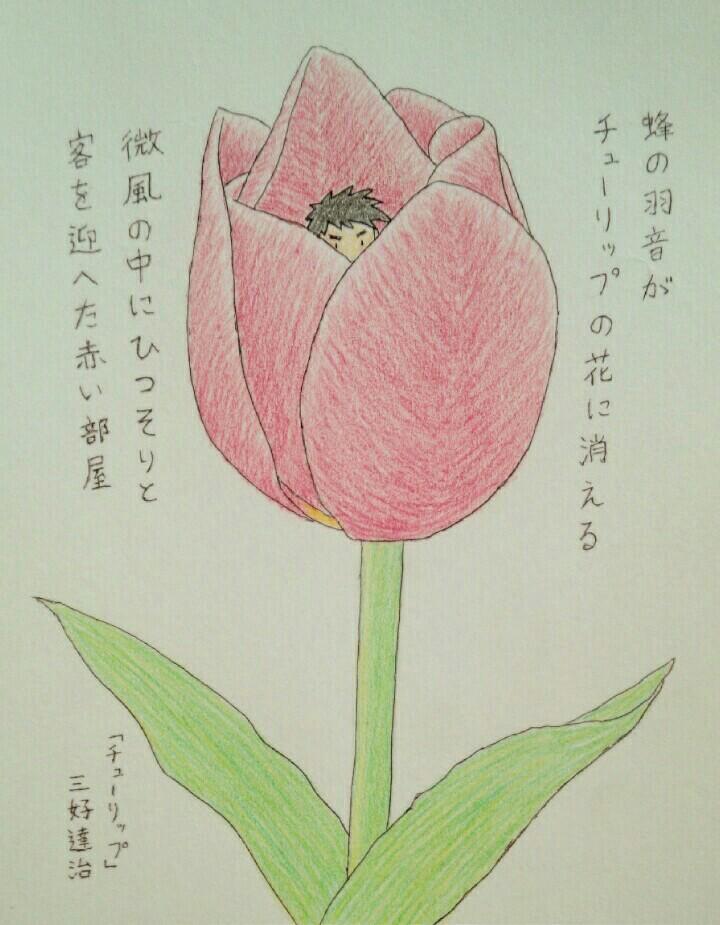 蜂の羽音が
チューリップの花に消える
微風の中にひつそりと
客を迎へた赤い部屋
「チューリップ」
三好達治